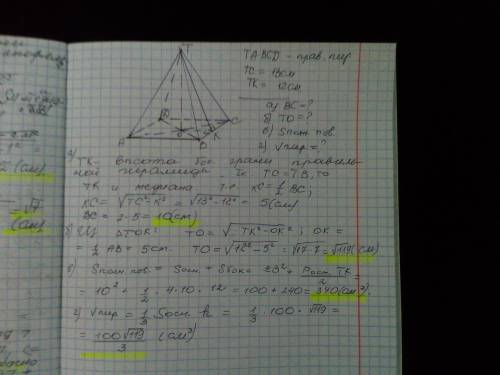 T
A
B
C
K
O
TABCD - прав. пир
TC = 13см
TK = 12см
а) BC = ?
б) TO = ?
в) Sполн пов.
г) Vпир = ?
а) TK - высота бок грани правиль-
ной пирамиды. Тк TC = TB, то
TK и медиана т.е. KC = 1/2 BC;
KC = √TC²-K² = √13²-12² = 5(см)
BC = 2·5 = 10(см)
б) Из ΔTOK: TO = √TK²-OK²; OK =
= 1/2 AB = 5см. TO = √12²-5² = √17·7 = √119(см)
в) Sполн пов. = Sосн + Sбок = AB² + Pосн·TK/2 =
= 10² + 1/2 · 4·10·12 = 100 + 240 = 340(см²)
г) Vпир = 1/3 Sосн. h = 1/3 · 100 · √119 =
= 100√119/3 (см³)